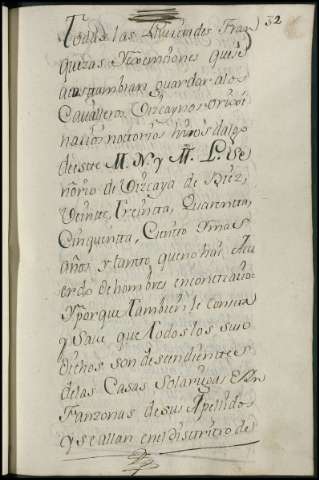 32
Todas las Libertades Fran
quezas y Exempciones que se
acostumbran guardar a los
Cavalleros Vizcaynos origi
narios notorios hixos dalgo
de este M. N. y M. L. Se
ñorio de Vizcaya de Diez,
Veinte, Treinta, Quarenta,
Cinquenta, Ciento y mas
años, y tanto que no hai Acu
erdo de hombres en contrario
Y porque tambien le consta
y Save que todos los suso
dichos son descendientes
de las Casas Solariegas e In
fanzonas de sus Apellidos
q se allan en el distrito de